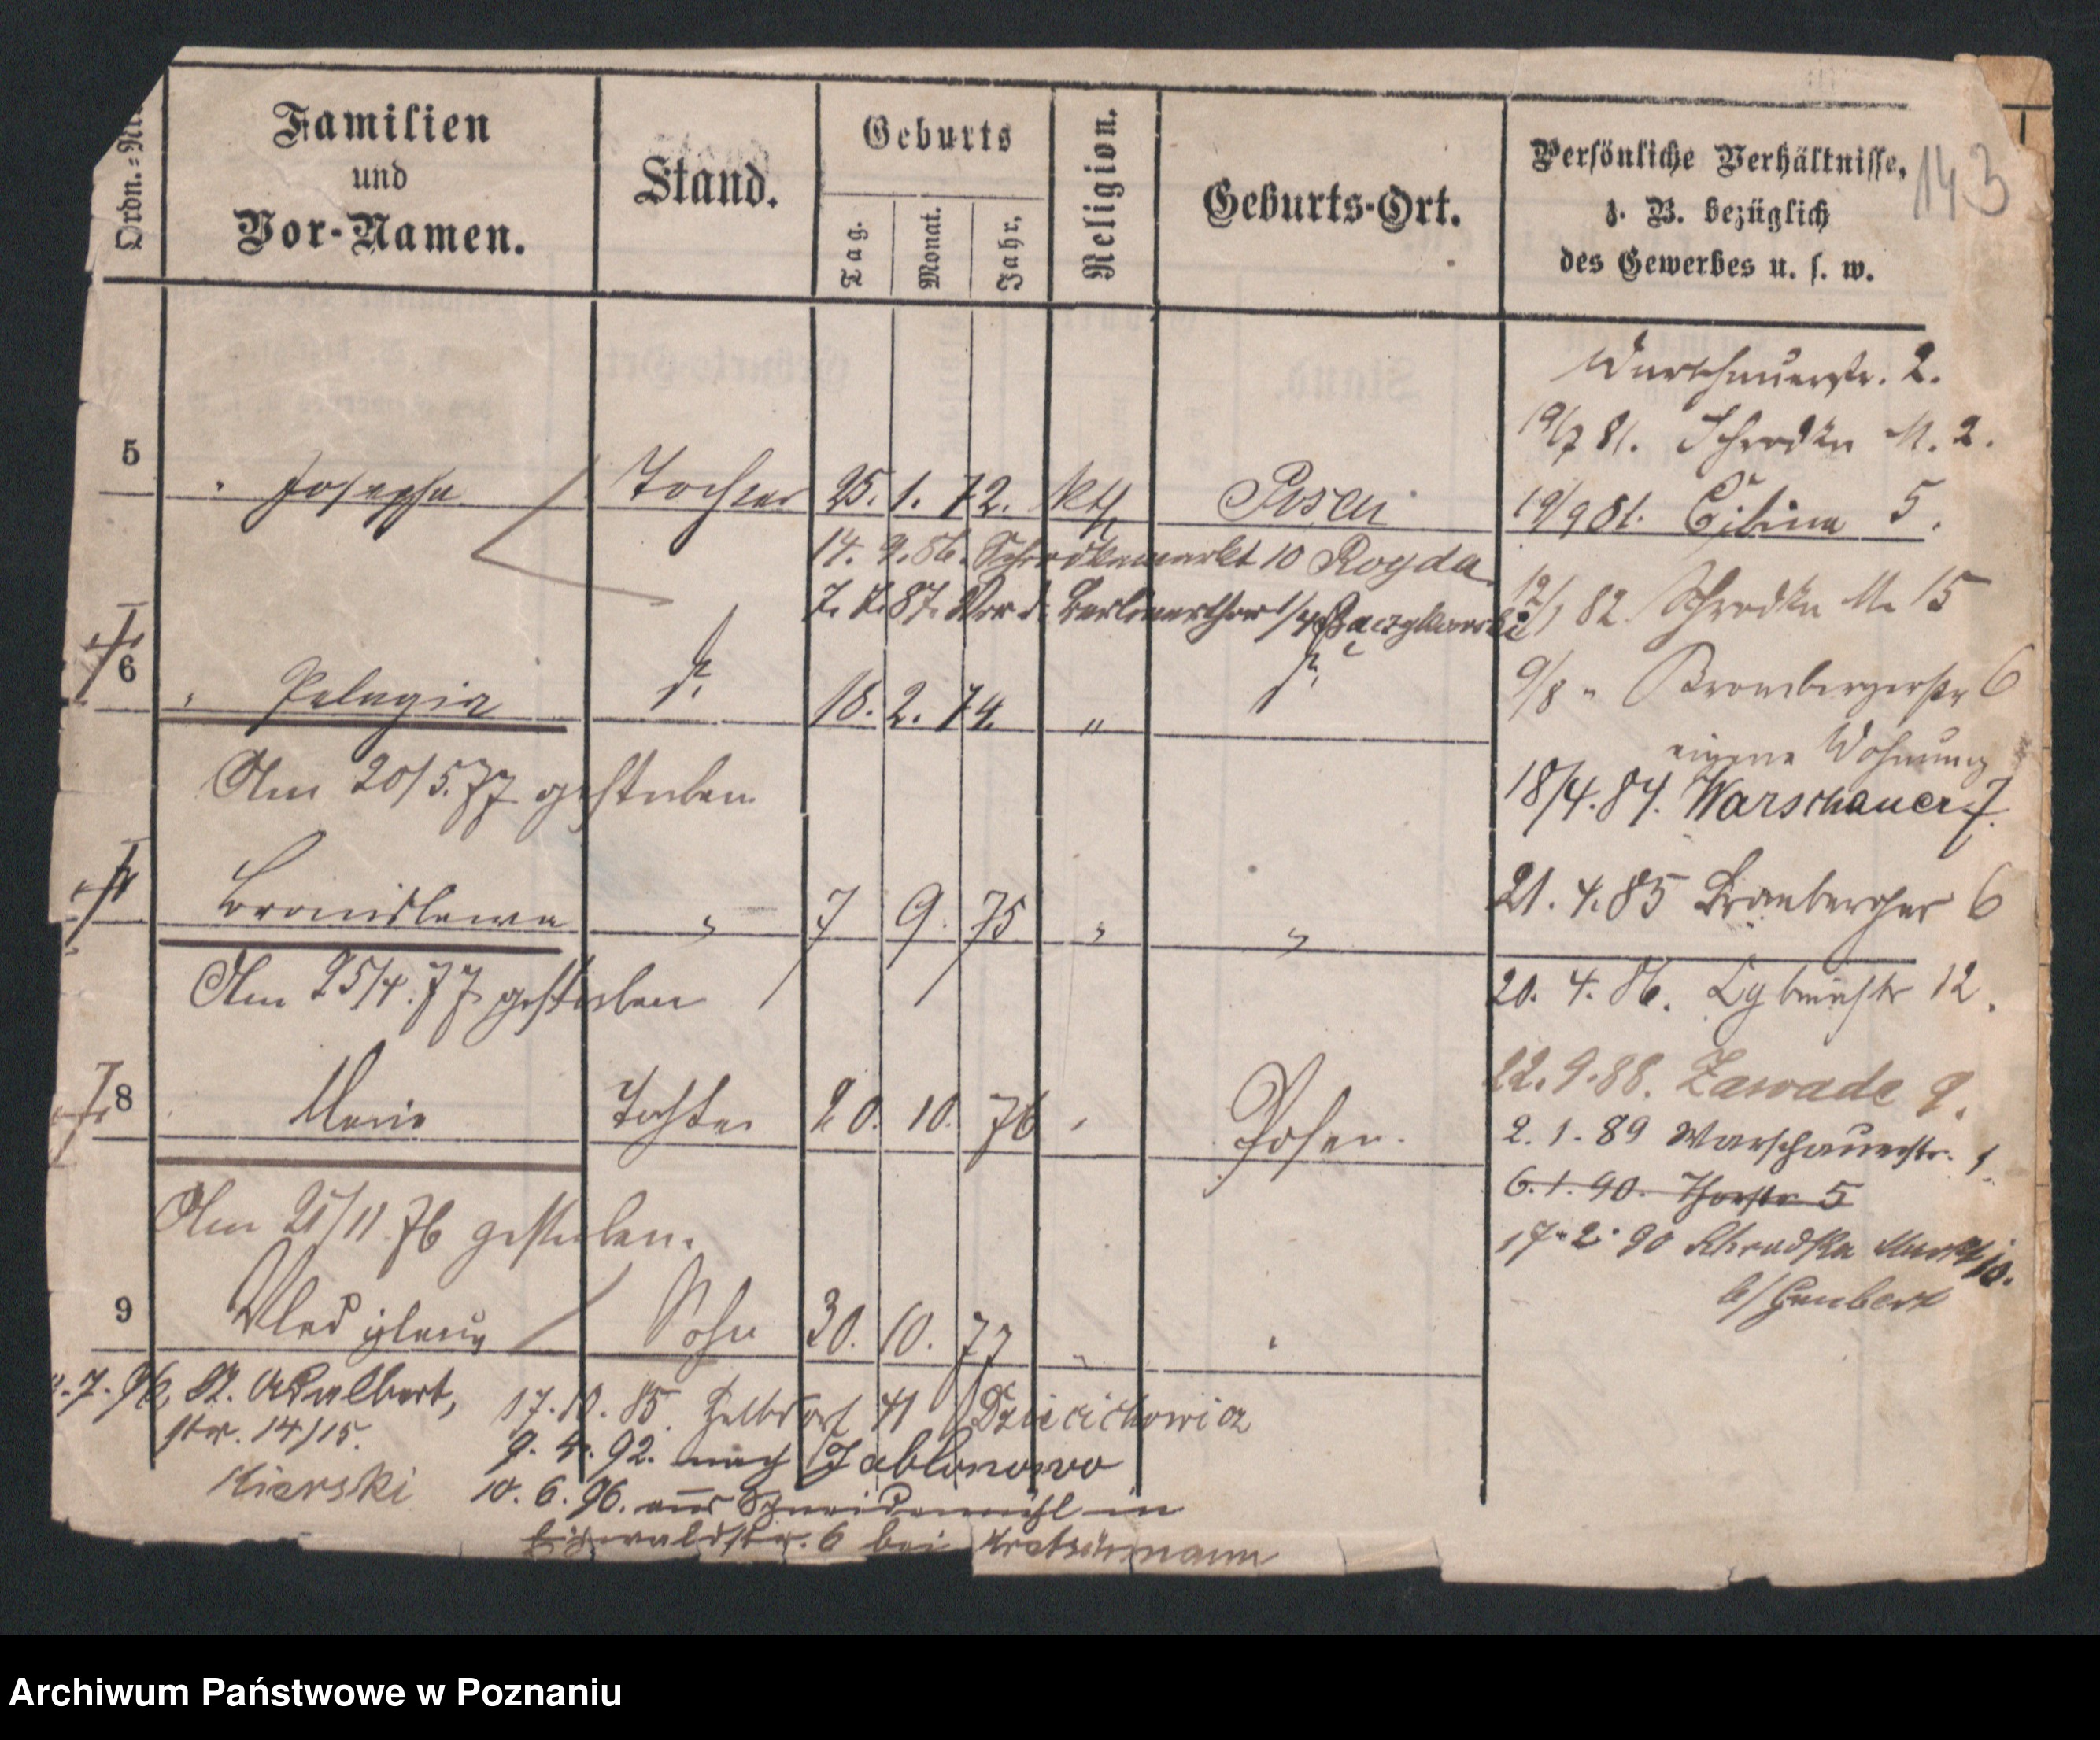 143
Ordn.=Nr.
Familien
und
Vor-Namen.
Stand.
Geburts
Tag.
Monat.
Jahr.
Religion.
Geburts-Ort.
Persönliche Verhältnisse,
z. B. bezüglich
des Gewerbes u. s. w.
Warschauerstr. 2.
19/7 81. Schrodka M. 2.
5 " Josepha Tochter 25. 1. 72. kth Posen
19/9 81. Cibina 5.
14. 9. 86. Schrodkamarkt 10 Rogda
7. 7. 87. Vor d. Berlinerthor
12/1 82. Schrodka M. 15
6 " Pelagia do 18. 2. 74. " do
9/8 " Brombergerstr 6
eigene Wohnung
Am 20/5. 77 gestorben
18/4. 84. Warschauer 7.
Bronislawa " 7 9. 75 " "
21. 4. 85 Bromberger 6
Am 25/4. 77 gestorben
20. 4. 86. Cybinastr 12.
8 Marie Tochter 20. 10. 76 " Posen.
22. 9. 88. Zawade 9.
2. 1. 89 Warschauerstr. 1.
6. 1. 90. Thorstr 5
Am 21/11. 76 gestorben.
17. 2. 90 Schrodka Markt 10.
9 Sohn 30. 10. 77 "
7. 96, St. Adalbert,
str. 14/15.
17. 10. 85.
9. 4. 92. nach Jablonowo
10. 6. 96. aus Schneidemühl in
6 bei Kretschmann